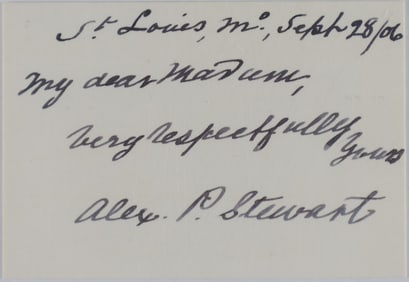 St Louis, Mo., Sept 28/06
My dear Madam,
Very respectfully
Yours
Alex. P. Stewart